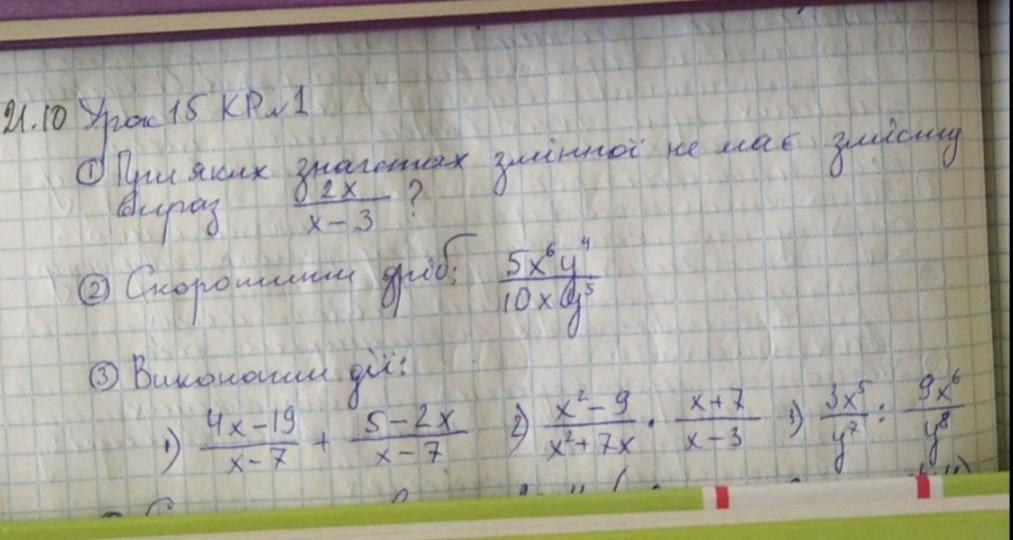 21.10 Урок 15 КР№1
① При яких значеннях змінної не має змісту
вираз 2x/(x-3) ?
② Скоротити дріб: 5x⁶y⁴/10xy⁵
③ Виконати дії:
1) (4x-19)/(x-7) + (5-2x)/(x-7) 2) (x²-9)/(x²+7x) · (x+7)/(x-3) 3) 3x⁵/y⁷ : 9x⁶/y⁸